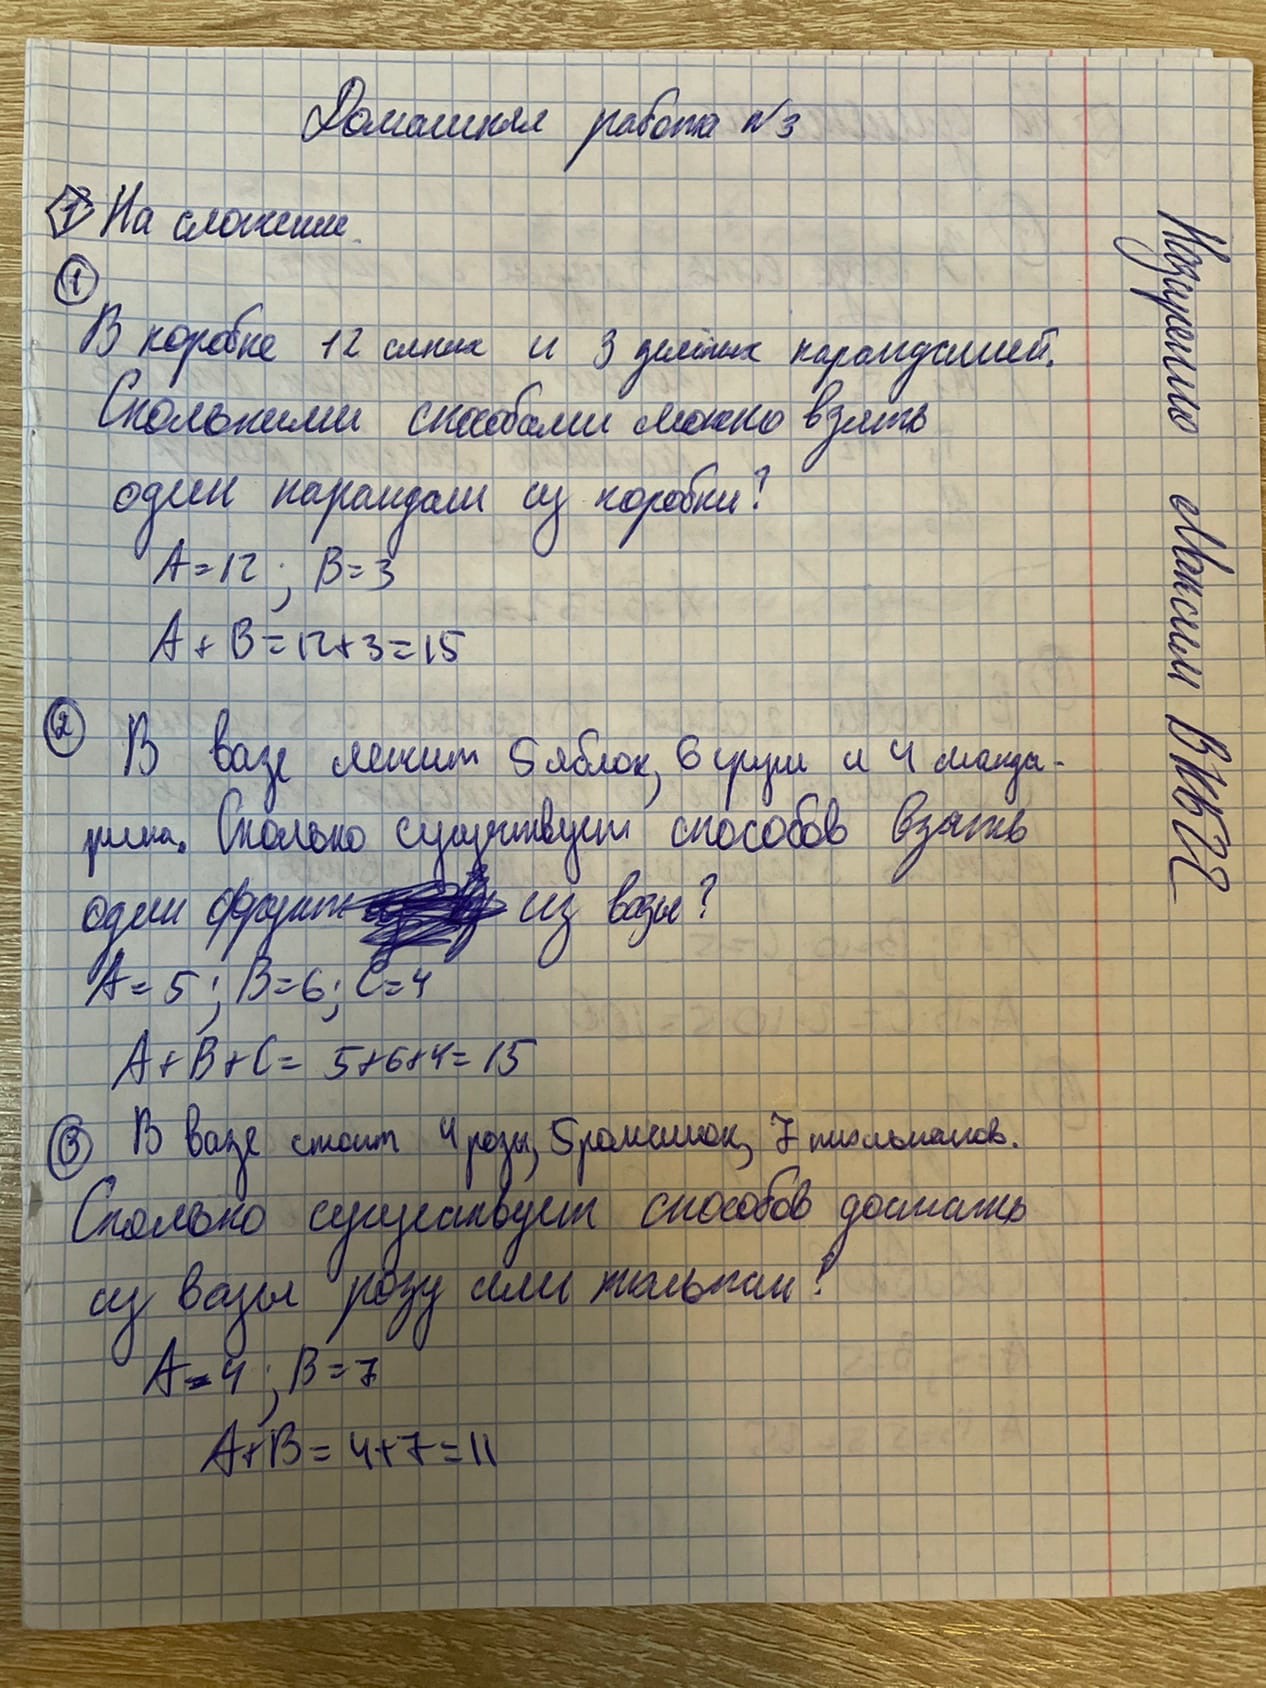 Домашняя работа №3
1 На сложение.
1
В коробке 12 синих и 3 зелёных карандашей.
Сколькими способами можно взять
один карандаш из коробки?
A=12; B=3
A+B=12+3=15
2 В вазе лежит 5 яблок, 6 груш и 4 манда-
рина. Сколько существует способов взять
один фрукт из вазы?
A=5; B=6; C=4
A+B+C= 5+6+4=15
3 В вазе стоит 4 розы, 5 ромашок, 7 тюльпанов.
Сколько существует способов достать
из вазы розу или тюльпан?
A=4; B=7
A+B=4+7=11
Максим